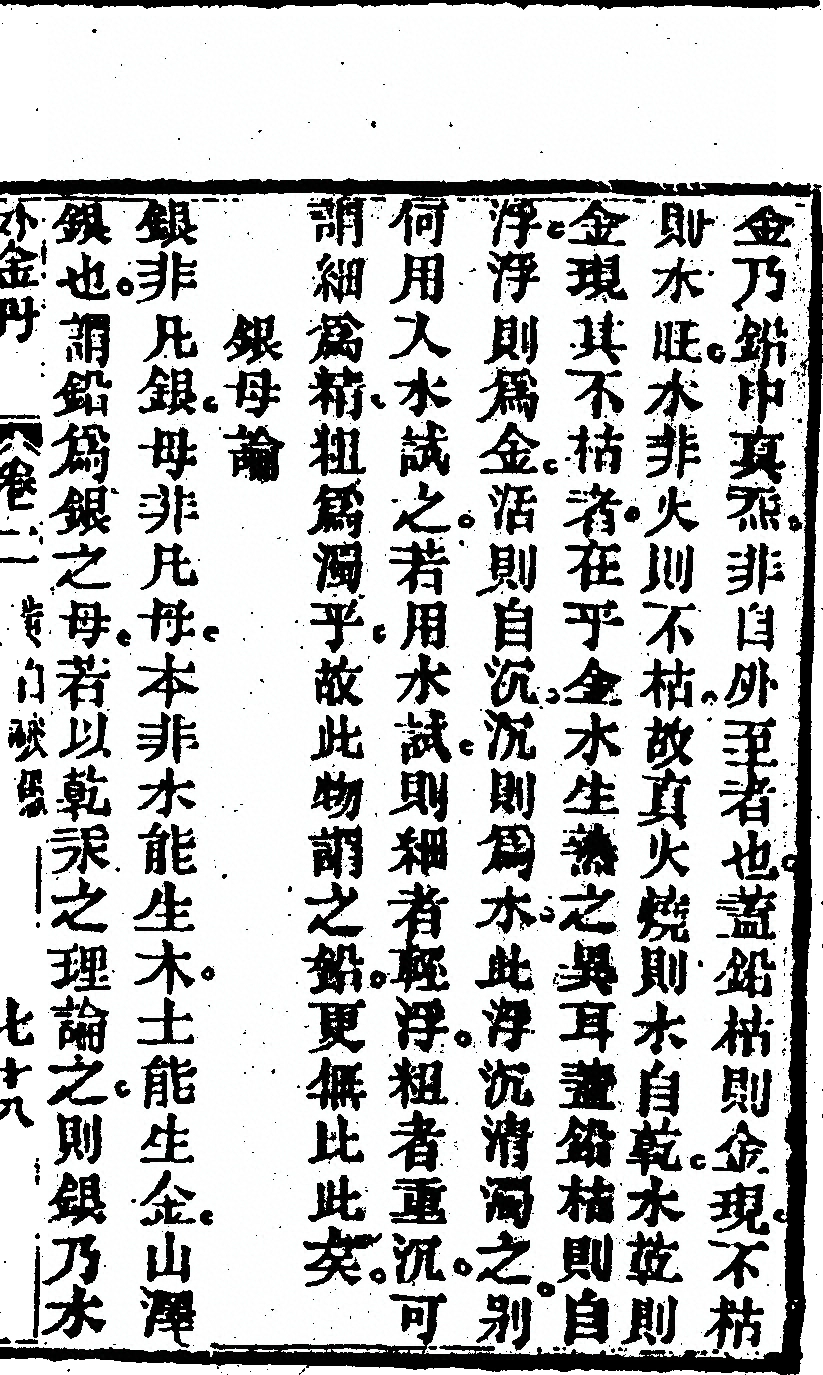 金乃鉛中真炁。非自外至者也。蓋鉛枯則金現。不枯
則水旺。水非火則不枯。故真火燒則水自乾。水乾則
金現其不枯者。在乎金水生熟之異耳蓋鉛枯則自
浮。浮則為金。活則自沉。沉則為水。此浮沉清濁之别。
何用入水試之。若用水試。則細者輕浮。粗者重沉。可
謂細為精。粗為濁乎。故此物謂之鉛。更無比此矣。
銀母論
銀非凡銀。母非凡母。本非水能生木。土能生金。山澤
銀也。謂鉛為銀之母。若以乾汞之理論之。則銀乃水
外金丹 卷二 黃白破愚 七十八